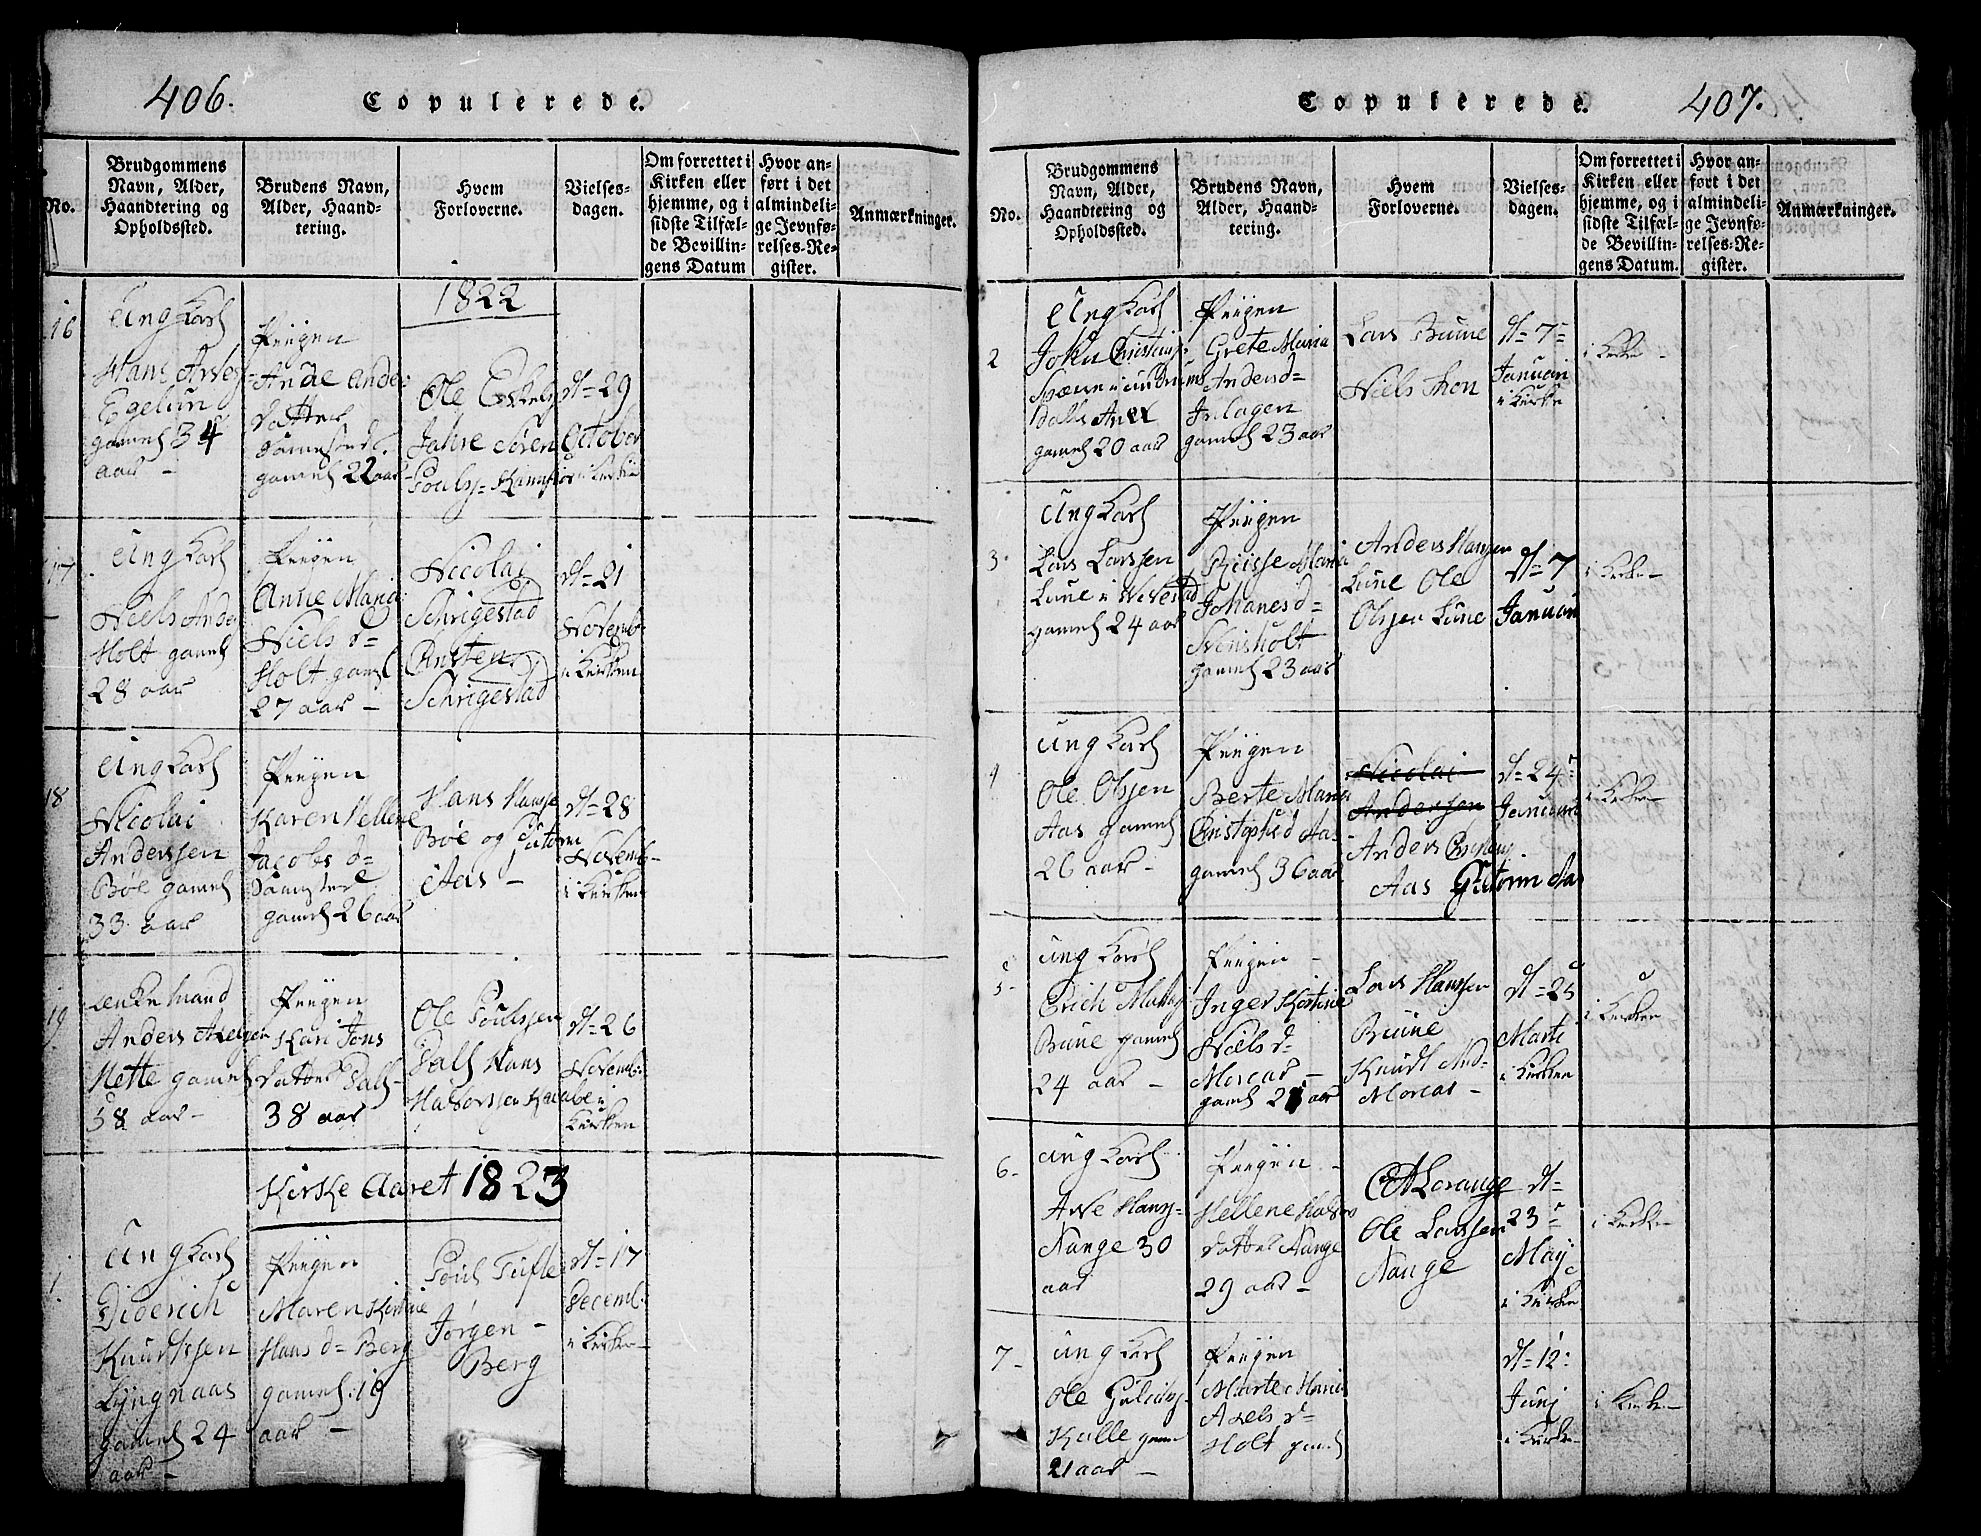 406.
Copulerede.
No.
Brudgommens
Navn, Alder,
Haandtering og
Opholdssted.
Brudens Navn,
Alder, Haand-
tering.
Hvem
Forloverne.
Vielses-
dagen.
Om forrettet i
Kirken eller
hjemme, og i
sidste Tilfæl-
de Bevillin-
gens Datum
Hvor an-
ført i det
almindeli-
ge Jevnfø-
relses-Re-
gister.
Anmærkninger.
1822
16
Ung Karl
Hans
Egelun
gamel 34
aar -
Piigen
Ande Anders
datter
gamel 22 aar
Ole
Jahre Søren
Pouls=
dt= 29
October
i Kirken
17
Ung Karl
Niels Anders
Holt gamel
28 aar
Piigen
Anne Maria
Niels d=
Holt gaml
27 aar -
Nicolai
Schrigestad
Schrigestad
dt= 21
Novemb-
i Kirken
18
Ung Karl
Nicolai
Anderssen
Bøe gamel
33. aar
Piigen
Karen Hellene
Jacobs d=
gamel 26 aar
Hans Hansse
Bøe og
Aas -
dt= 28
Novemb-
i Kirken
19
Enke Mand
Anders
Mette gamel
58 aar -
Piigen
Kari Jons
datter
38 aar
Ole Poulssen
Hans
Halvorssen
dt= 26
Novemb:
i
Kirken
Kirke Aaret 1823
1
Ung Karl
Diderich
Knudssen
Lyngnaas
gamel 24
aar -
Piigen
Maren Kirstine
Hans d= Berg
gamel 19
aar -
Poul Tufte
Jørgen -
Berg
dt= 17
Decemb.
i Kirken
407.
Copulerede.
No.
Brudgommens
Navn, Alder,
Haandtering og
Opholdssted.
Brudens Navn,
Alder, Haand-
tering.
Hvem
Forloverne.
Vielses-
dagen.
Om forrettet i
Kirken eller
hjemme, og i
sidste Tilfæl-
de Bevillin-
gens Datum.
Hvor an-
ført i det
almindeli-
ge Jevnfø-
relses-Re-
gister.
Anmærkninger.
2
Ung Karl
John
gamel 20 aar
Piigen
Grete Maria
Anders d=
gamel 23 aar
Lars Buine
Niels Thon
dt= 7=
Januari
i Kirke
i Kirke -
3.
Ung Karl
Lars Larssen
Lune i
gamel 24 aar
Piigen
Maria
Johanes d=
gamel 23 aar
Anders Hanssen
Lune Ole
Olssen Lune
dt= 7
Januari
i Kirke -
4
Ung Karl
Ole Olssen
Aas gamel
26 aar -
Piigen
Berte Maria
Christoph: d Aas
gamel 36 aar
Nicolai
Anderssen
Anders
Aas
dt= 24=
Januari
i Kirke -
5-
Ung Karl
Erich
Bune gamel
24 aar -
Piigen -
Inger Kirstine
Niels d=
Morcar -
gamel aar
Lars Hanssen
Buine
Knudt And=
Morcar -
dt= 25
Marti
i Kirken
i Kirken
6-
Ung Karl
Arve Hans=
Nange 30
aar
Piigen -
Hellene Halvors
datter Nange
29 aar -
Lorange
Ole Larssen
Nange
dt=
23=
Maij
i Kirke
i Kirke -
7-
Ung Karl
Ole
Kalle gamel
21 aar -
Piigen
Marte Maria
Axels d=
Holt gamel
dt= 12=
Junj
i Kirke -
i Kirke -